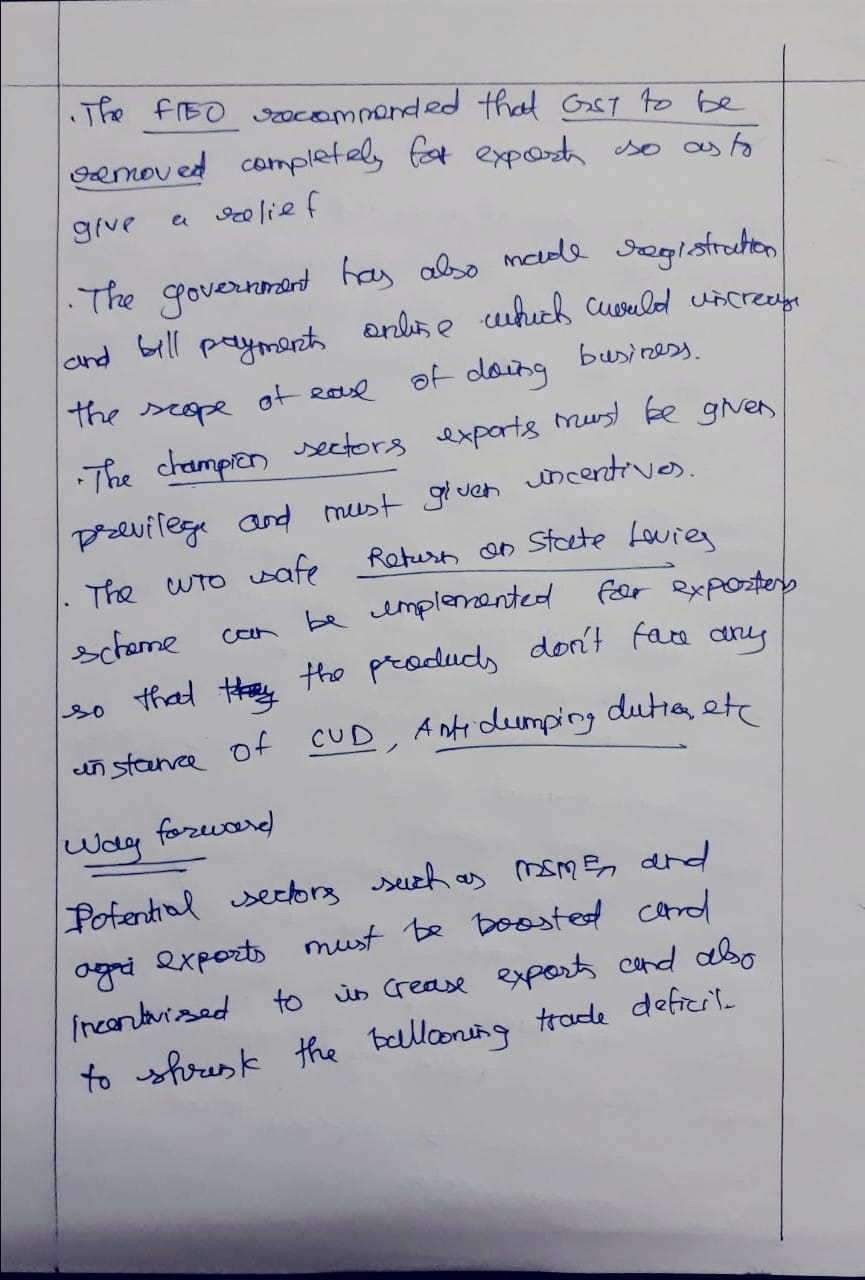 . The FIEO recommended that GST to be
removed completely for exports so as to
give a relief
. The government has also made registration
and bill payments online which would increase
the scope of ease of doing business.
. The champion sectors exports must be given
previlege and must given incentives.
. The WTO safe Return on State Levies
scheme can be implemented for exporters
so that they the products don't face any
instance of CVD, Antidumping duties, etc
Way forward
Potential sectors such as MSMEs and
agri exports must be boosted and
incentivised to increase exports and also
to shrink the ballooning trade deficit.